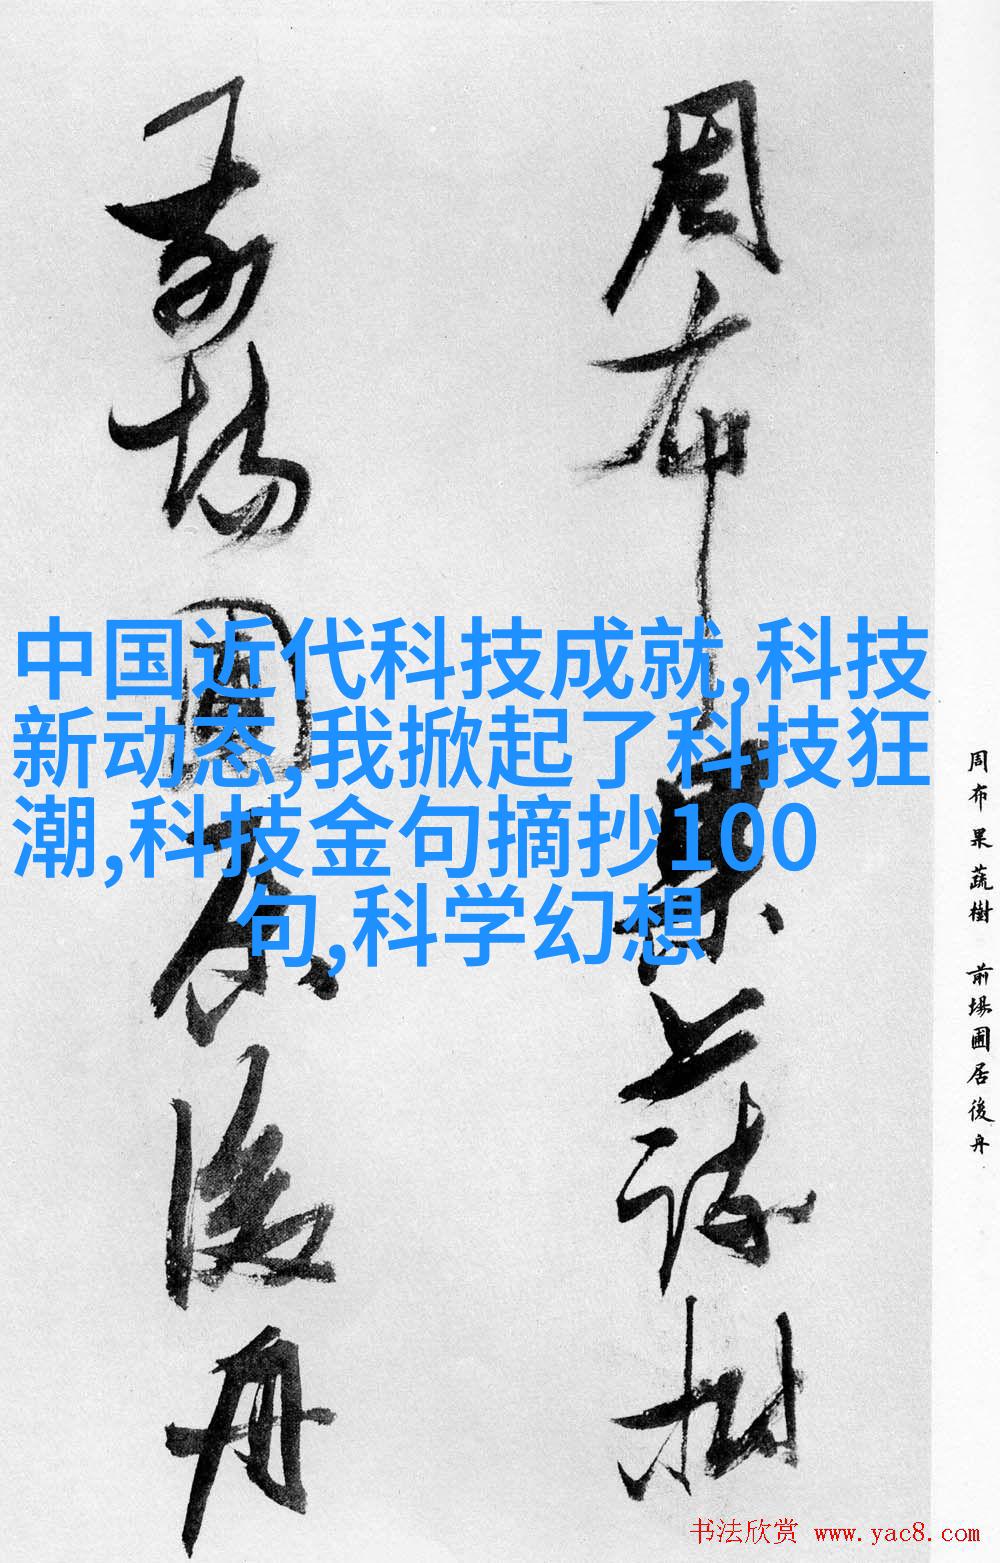 周布果蔬樹
前場圃居後舟
中国近代科技成就,科技
新动态,我掀起了科技狂
潮,科技金句摘抄100
句,科学幻想
周布果蔬樹 前場圃居後舟
书法欣赏 www.yac8.com